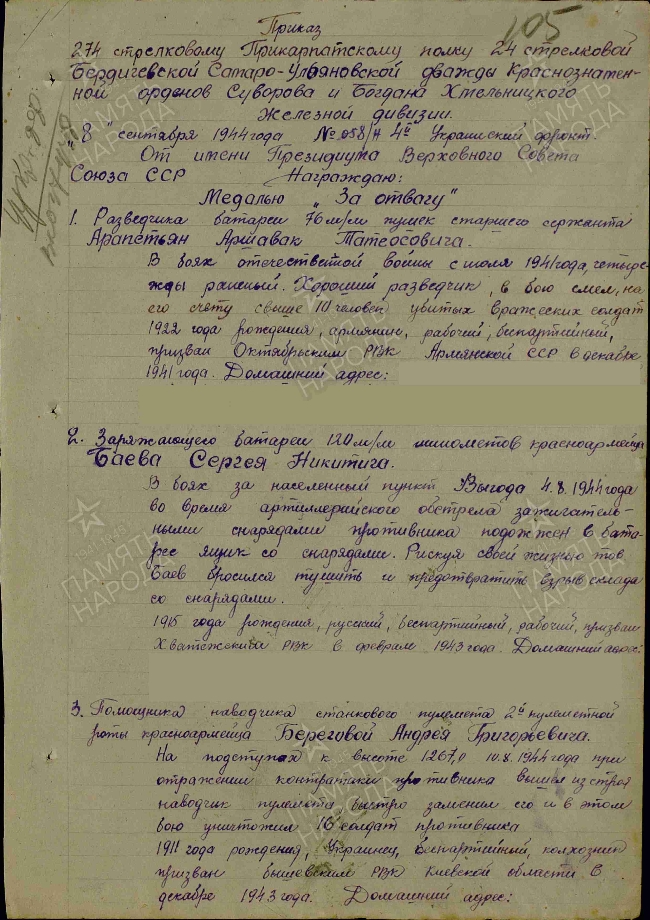 105
Приказ
274 стрелковому Прикарпатскому полку 24 стрелковой
Бердичевской Самаро-Ульяновской дважды Краснознамен-
ной орденов Суворова и Богдана Хмельницкого
Железной дивизии.
"8" сентября 1944 года № 058/н 4й Украинский фронт.
От имени Президиума Верховного Совета
Союза ССР Награждаю:
Медалью "За отвагу"
1. Разведчика батареи 76 м/м пушек старшего сержанта
Арапетьян Аршавак Татеосовича.
В боях отечественной войны с июля 1941 года, четыре-
жды раненый. Хороший разведчик, в бою смел, на
его счету свыше 10 человек убитых вражеских солдат
1922 года рождения, армянин, рабочий, беспартийный,
призван Октябрьским РВК Армянской ССР в декабре
1941 года. Домашний адрес:
2. Заряжающего батареи 120 м/м минометов красноармейца
Баева Сергея Никитича.
В боях за населенный пункт Выгода 4.8.1944 года
во время артиллерийского обстрела зажигатель-
ными снарядами противника подожжен в бата-
рее ящик со снарядами. Рискуя своей жизнью тов.
Баев бросился тушить и предотвратить взрыв склада
со снарядами.
1915 года рождения, русский, беспартийный, рабочий, призван
РВК в феврале 1943 года. Домашний адрес:
3. Помощника наводчика станкового пулемета 2й пулеметной
роты красноармейца Береговой Андрея Григорьевича.
На подступах к высоте 1267,0 10.8.1944 года при
отражении контратаки противника вышел из строя
наводчик пулемета, быстро заменил его и в этом
бою уничтожил 16 солдат противника
1911 года рождения, Украинец, беспартийный, колхозник
призван вышевским РВК Киевской области в
декабре 1943 года. Домашний адрес:
ПАМЯТЬ
НАРОДА
ПАМЯТЬ
НАРОДА
ПАМЯТЬ
НАРОДА
ПАМЯТЬ
НАРОДА